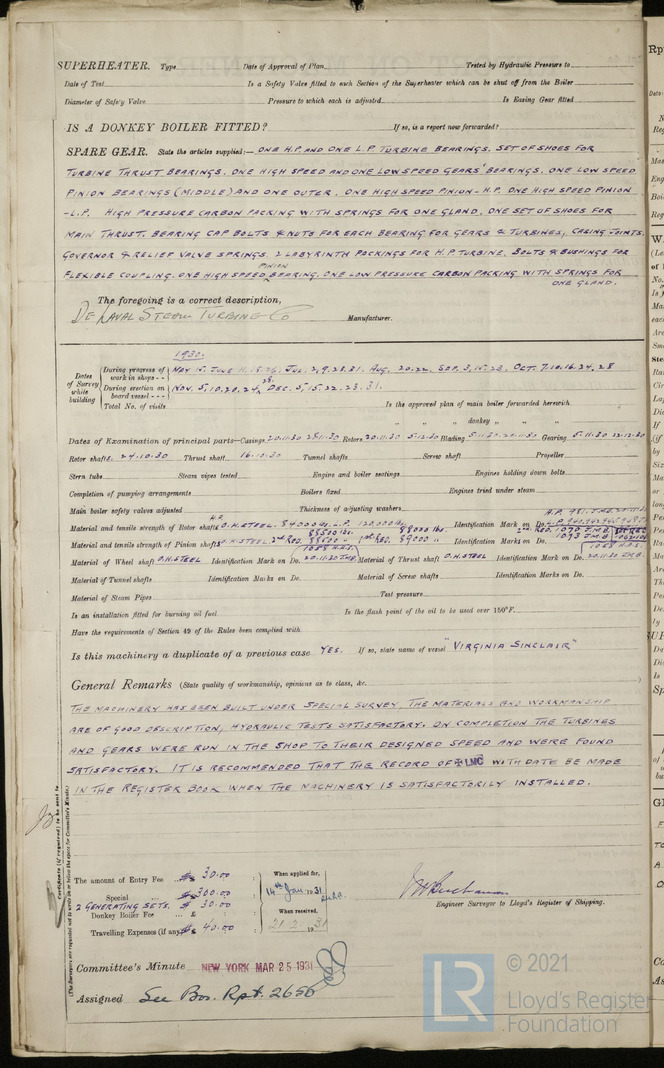 SUPERHEATER. Type Date of Approval of Plan Tested by Hydraulic Pressure to
Date of Test Is a Safety Valve fitted to each Section of the Superheater which can be shut off from the Boiler
Diameter of Safety Valve Pressure to which each is adjusted Is Easing Gear fitted
IS A DONKEY BOILER FITTED? If so, is a report now forwarded?
SPARE GEAR. State the articles supplied:— ONE H.P. AND ONE L.P. TURBINE BEARINGS. SET OF SHOES FOR
TURBINE THRUST BEARINGS. ONE HIGH SPEED AND ONE LOW SPEED GEARS' BEARINGS. ONE LOW SPEED
PINION BEARINGS (MIDDLE) AND ONE OUTER. ONE HIGH SPEED PINION - H.P. ONE HIGH SPEED PINION
- L.P. HIGH PRESSURE CARBON PACKING WITH SPRINGS FOR ONE GLAND. ONE SET OF SHOES FOR
MAIN THRUST. BEARING CAP BOLTS & NUTS FOR EACH BEARING FOR GEARS & TURBINES, CASING JOINTS,
GOVERNOR & RELIEF VALVE SPRINGS. 2 LABYRINTH PACKINGS FOR H.P. TURBINE. BOLTS & BUSHINGS FOR
FLEXIBLE COUPLING. ONE HIGH SPEED PINION BEARING. ONE LOW PRESSURE CARBON PACKING WITH SPRINGS FOR
ONE GLAND.
The foregoing is a correct description,
DE LAVAL STEAM TURBINE Co Manufacturer.
1930.
Dates of Survey while building
During progress of work in shops - - JUL. 2, 9, 23. 31. AUG. 20. 22. SEP. 3, 15. 23. OCT. 7. 10. 16. 24. 28
During erection on board vessel - - - NOV. 5, 10. 20. 24, 28. DEC. 5, 15. 22. 23. 31.
Total No. of visits Is the approved plan of main boiler forwarded herewith
" " donkey " " "
Dates of Examination of principal parts—Casings 20.11.30 28.11.30 Rotors 20.11.30 5.12.30 Blading 5.11.30 20.11.30 Gearing 5.11.30 22.12.30
Rotor shafts 24.10.30 Thrust shaft 16.10.30 Tunnel shafts Screw shaft Propeller
Stern tube Steam pipes tested Engine and boiler seatings Engines holding down bolts
Completion of pumping arrangements Boilers fixed Engines tried under steam
Main boiler safety valves adjusted Thickness of adjusting washers
Material and tensile strength of Rotor shafts H.P. O.H. STEEL. 84000 lbs. L.P. 88000 lbs. Identification Mark on Do.
Material and tensile strength of Pinion shafts O.H. STEEL 2nd RED. 1st RED. 89000 " Identification Marks on Do. 1093 J.M.B.
Material of Wheel shaft O.H. STEEL Identification Mark on Do. 20.11.30 J.M.B. Material of Thrust shaft O.H. STEEL Identification Mark on Do. 20.11.30 J.M.B.
Material of Tunnel shafts Identification Marks on Do. Material of Screw shafts Identification Marks on Do.
Material of Steam Pipes Test pressure
Is an installation fitted for burning oil fuel Is the flash point of the oil to be used over 150°F.
Have the requirements of Section 49 of the Rules been complied with
Is this machinery a duplicate of a previous case YES. If so, state name of vessel "VIRGINIA SINCLAIR"
General Remarks (State quality of workmanship, opinions as to class, &c.
THE MACHINERY HAS BEEN BUILT UNDER SPECIAL SURVEY, THE MATERIALS AND WORKMANSHIP
ARE OF GOOD DESCRIPTION, HYDRAULIC TESTS SATISFACTORY. ON COMPLETION THE TURBINES
AND GEARS WERE RUN IN THE SHOP TO THEIR DESIGNED SPEED AND WERE FOUND
SATISFACTORY. IT IS RECOMMENDED THAT THE RECORD OF ✠ LMC WITH DATE BE MADE
IN THE REGISTER BOOK WHEN THE MACHINERY IS SATISFACTORILY INSTALLED.
Certificate (if required) to be sent to
(The Surveyors are requested not to write on or below the space for Committee's Minute.)
The amount of Entry Fee $ 30.00 When applied for,
Special $ 300.00 14th Jan. 1931
2 GENERATING SETS. $ 30.00
Donkey Boiler Fee £ When received,
Travelling Expenses (if any) $ 40.00 21.2.1931
Engineer Surveyor to Lloyd's Register of Shipping.
Committee's Minute NEW YORK MAR 25 1931
Assigned See Bos. Rpt. 2656
© 2021
LR
Lloyd's Register
Foundation